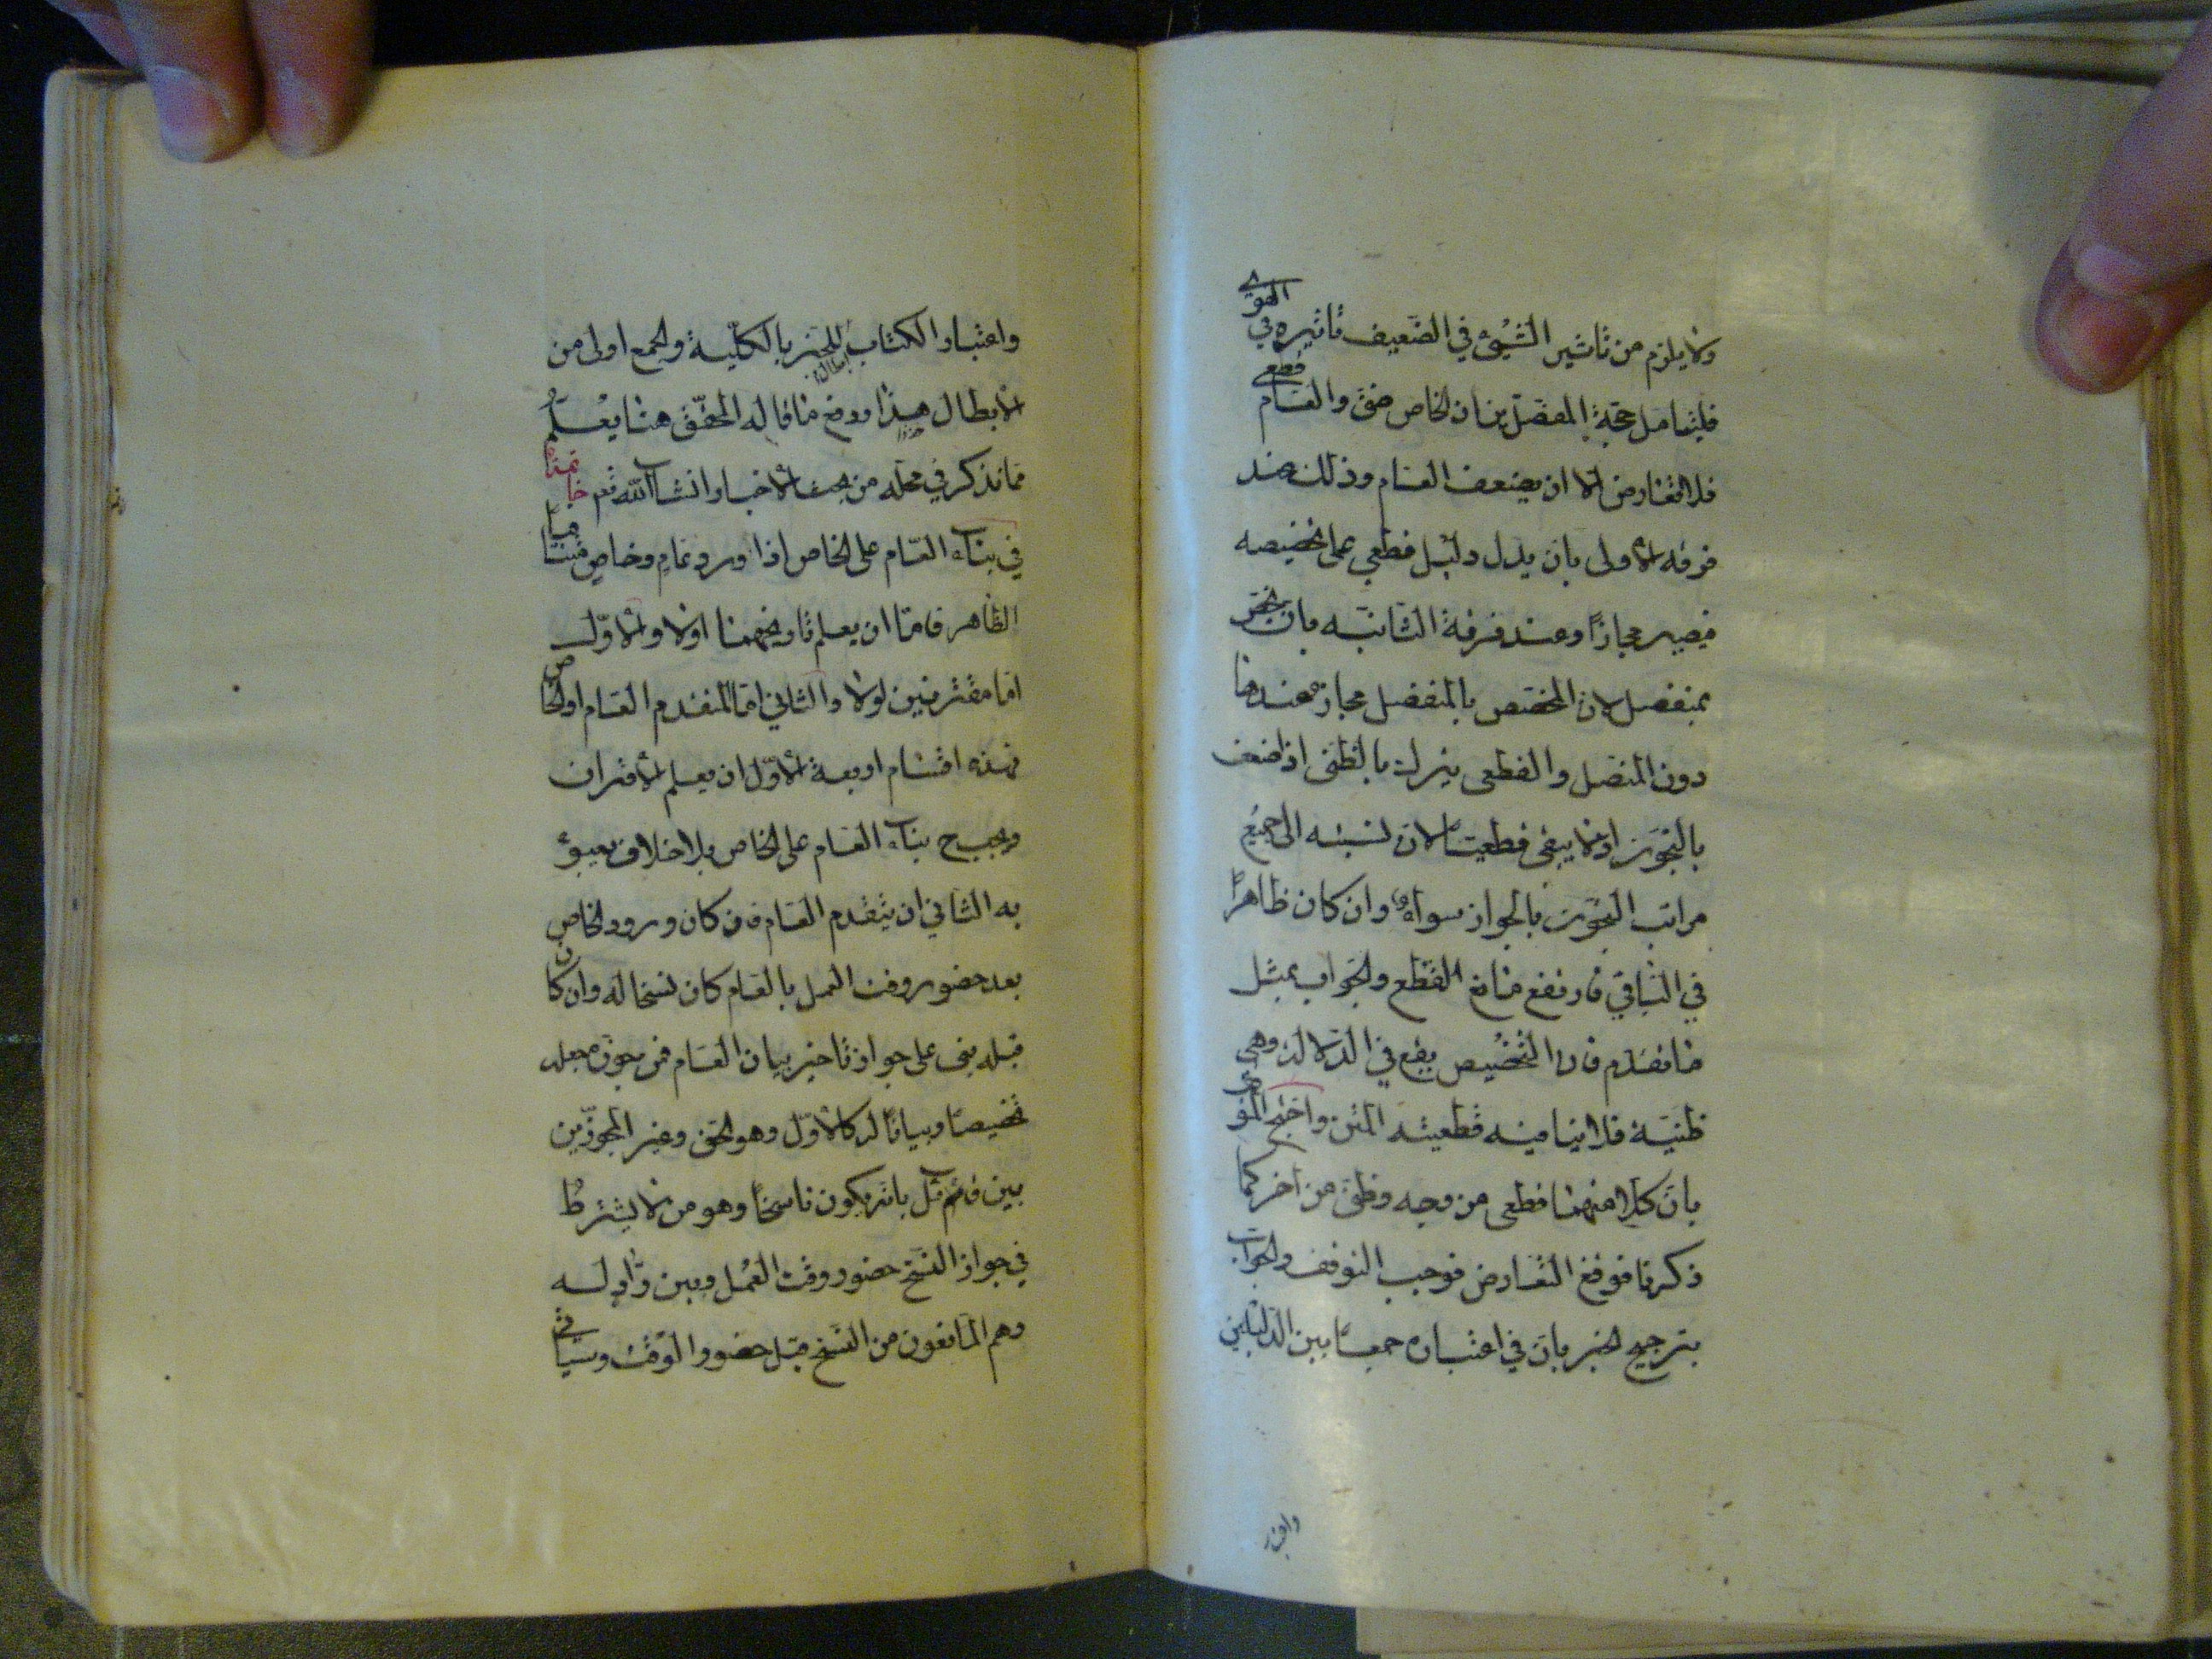 ولا يلزم من تاثير الشيئ في الضعيف تاثيره في القوي
فليتامل حجة المفصلين ان الخاص ظني والعام قطعي
فلا تعارض الا ان يضعف العام وذلك عند
فرقه الاولى بان يدل دليل قطعي على تخصيصه
فيصير مجازا وعند فرقة الثانيه بان يخص
بمنفصل لان المختص بالمنفصل مجاز عندها
دون المتصل والقطعي يترك بالظني اذا ضعف
بالتجوز اذ لا يبقى قطعيتا لان نسبته الى جميع
مراتب التجوز بالجواز سواء وان كان ظاهرا
في الباقي فارتفع مانع القطع والجواب بمثل
ما تقدم فان التخصيص يقع في الدلالة وهي
ظنية فلا ينافيه قطعيته المتن واحتج المتوقف
بان كلا منهما قطعي من وجه وظني من آخر كما
ذكرنا فوقع التعارض فوجب التوقف والجواب
بترجيح الخبر بان في اعتباره جمعا بين الدليلين
واعتبار الكتاب ابطال للخبر بالكلية والجمع اولى من
الابطال هذا ودفع ما قاله المحقق هنا يعلم
مما نذكر في محله من بحث الاخبار انشاء الله تعم خاتمة
في بناء العام على الخاص اذا ورد عام وخاص متنافيا
الظاهر فاما ان يعلم تاريخهما اولا والاول
اما مقترنين اولا والثاني اما المتقدم العام او الخاص
فهذه اقسام اربعة الاول ان يعلم الاقتران
ويجب ح بناء العام على الخاص بلا خلاف يعبؤ
به الثاني ان يتقدم العام فان كان ورود الخاص
بعد حضور وقت العمل بالعام كان نسخا له وان كان
قبله بنى على جواز تاخير بيان العام فمن يجوزه جعله
تخصيصا وبيانا له كالاول وهو الحق وغير المجوزين
بين قائل بانه يكون ناسخا وهو من لا يشترط
في جواز النسخ حضور وقت العمل وبين راد له
وهم المانعون من النسخ قبل حضور الوقت وسياتي